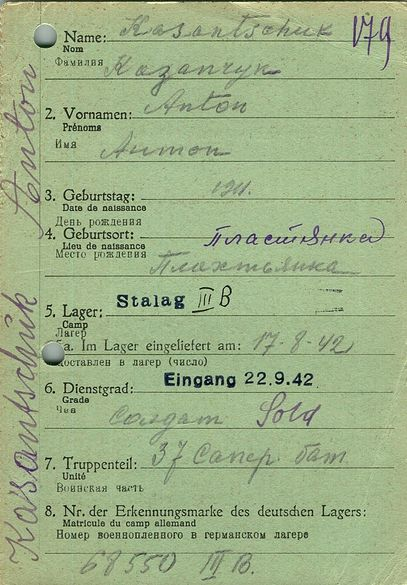 Name: Kasantschuk
179
Nom
Фамилия Казанчук
2. Vornamen: Anton
Prénoms
Имя Антон
3. Geburtstag:
Date de naissance
День рождения
4. Geburtsort: Пластянка
Lieu de naissance
Место рождения Плахтьянка
5. Lager: Stalag III B
Camp
Лагерь
5a. Im Lager eingeliefert am: 17-8-42
Доставлен в лагерь (число)
6. Dienstgrad: Eingang 22.9.42
Grade
Чин солдат Sold
7. Truppenteil: 37 Сапер. бат
Unité
Воинская часть
8. Nr. der Erkennungsmarke des deutschen Lagers:
Matricule du camp allemand
Номер военнопленного в германском лагере
68550 III B.
Kasantschuk Anton